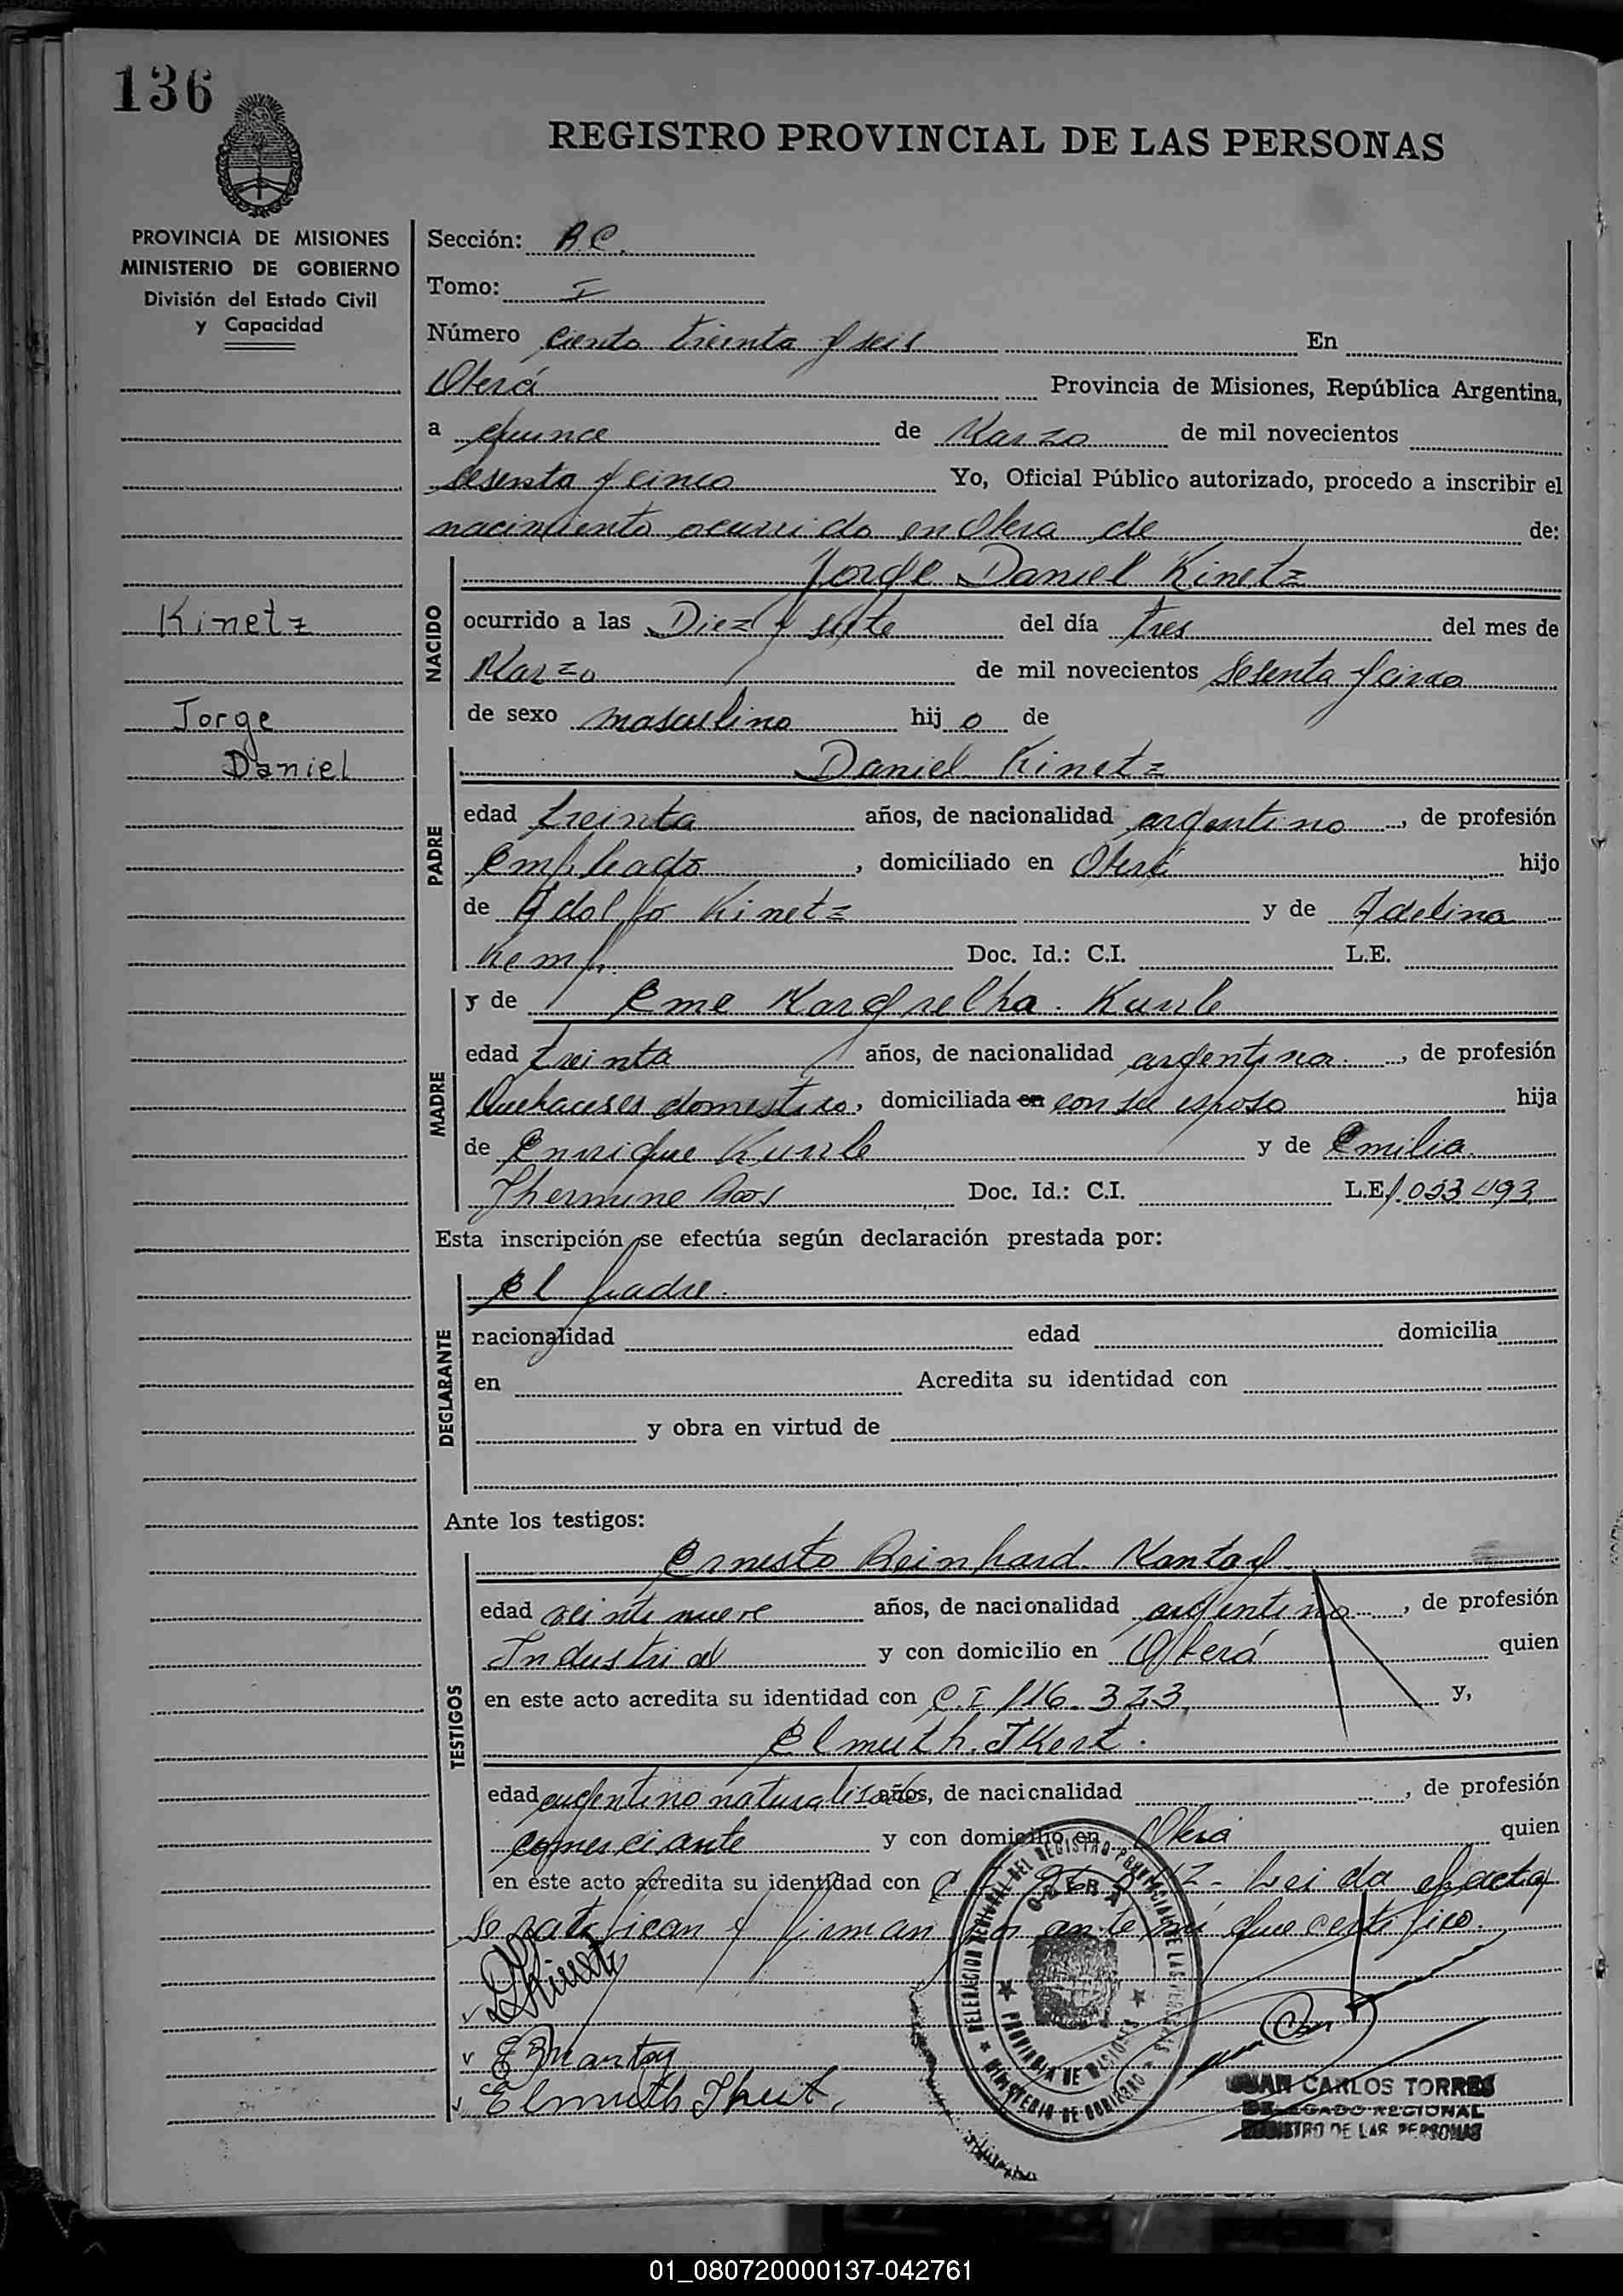 136
REGISTRO PROVINCIAL DE LAS PERSONAS
PROVINCIA DE MISIONES
MINISTERIO DE GOBIERNO
División del Estado Civil
y Capacidad
Kinetz
Jorge
Daniel
Sección:
Tomo: I
Número ciento treinta y seis En
Oberá Provincia de Misiones, República Argentina,
a quince de Marzo de mil novecientos
sesenta y cinco Yo, Oficial Público autorizado, procedo a inscribir el
nacimiento ocurrido en Obera de de:
NACIDO
Jorge Daniel Kinetz
ocurrido a las Diez y siete del día tres del mes de
Marzo de mil novecientos sesenta y cinco
de sexo masculino hijo de
PADRE
Daniel Kinetz
edad treinta años, de nacionalidad argentino, de profesión
Empleado, domiciliado en Oberá hijo
de Adolfo Kinetz y de Adelina
Kemp Doc. Id.: C.I. L.E.
MADRE
y de Eme
edad treinta años, de nacionalidad argentina, de profesión
Quehaceres domestico, domiciliada en con su esposo hija
de Enrique y de Emilia
Doc. Id.: C.I. L.E. 1.033.493
Esta inscripción se efectúa según declaración prestada por:
DEGLARANTE
El padre.
nacionalidad edad domicilia
en Acredita su identidad con
y obra en virtud de
Ante los testigos:
TESTIGOS
Ernesto Reinhard Mantay
edad veinte nueve años, de nacionalidad argentino, de profesión
Industrial y con domicilio en Oberá quien
en este acto acredita su identidad con C.I 116.323 y,
Elmuth
edad argentino naturalisado años, de nacionalidad , de profesión
comerciante y con domicilio en Obera quien
en este acto acredita su identidad con Leida el acta
se ratifican y firman por ante mi que certifico.
DKinetz
E R Mantay
Elmuth
DELEGACION REGIONAL DEL REGISTRO PROVINCIAL DE LAS PERSONAS
OBERA
PROVINCIA DE MISIONES
MINISTERIO DE GOBIERNO
JUAN CARLOS TORRES
DELEGADO REGIONAL
REGISTRO DE LAS PERSONAS
01_080720000137-042761